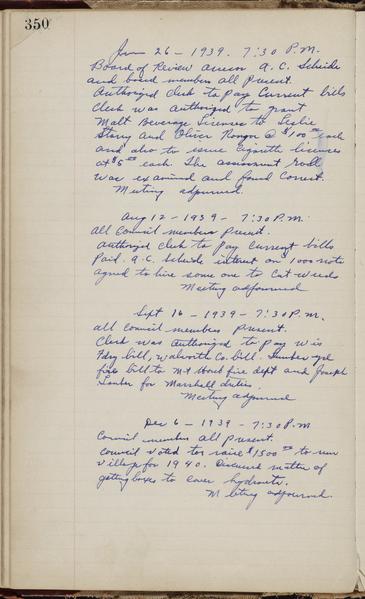 350
Jun 26 - 1939. 7:30 P.M.
Board of Review assessor A.C. Scheide
and board members all Present.
Authorized Clerk to pay Current bills
Clerk was authorized to grant
Malt Beverage Licenses to Leslie
and Oliver @ $100 00 each
and also to issue Cigarette licenses
at $5 00 each. The assessment Roll
was examined and found Correct.
Meeting adjourned.
Aug 12 - 1939 - 7:30 P.M.
All Council members present.
Authorized clerk to pay Current bills
Paid A.C. Scheide interest on 1000 note
agreed to hire some one to Cut weeds
Meeting adjourned
Sept 16 - 1939 - 7:30 P.M.
all Council members present.
Clerk was authorized to pay
bill, Walworth Co. bill.
fire bill to Mt Horeb fire dept and Joseph
for Marshall duties.
Meeting adjourned
Dec 6 - 1939 - 7:30 P.M
Council members all present.
Council voted to raise $1500 00 to run
village for 1940. Discussed matter of
getting boxes to cover hydrants.
Meeting adjourned.